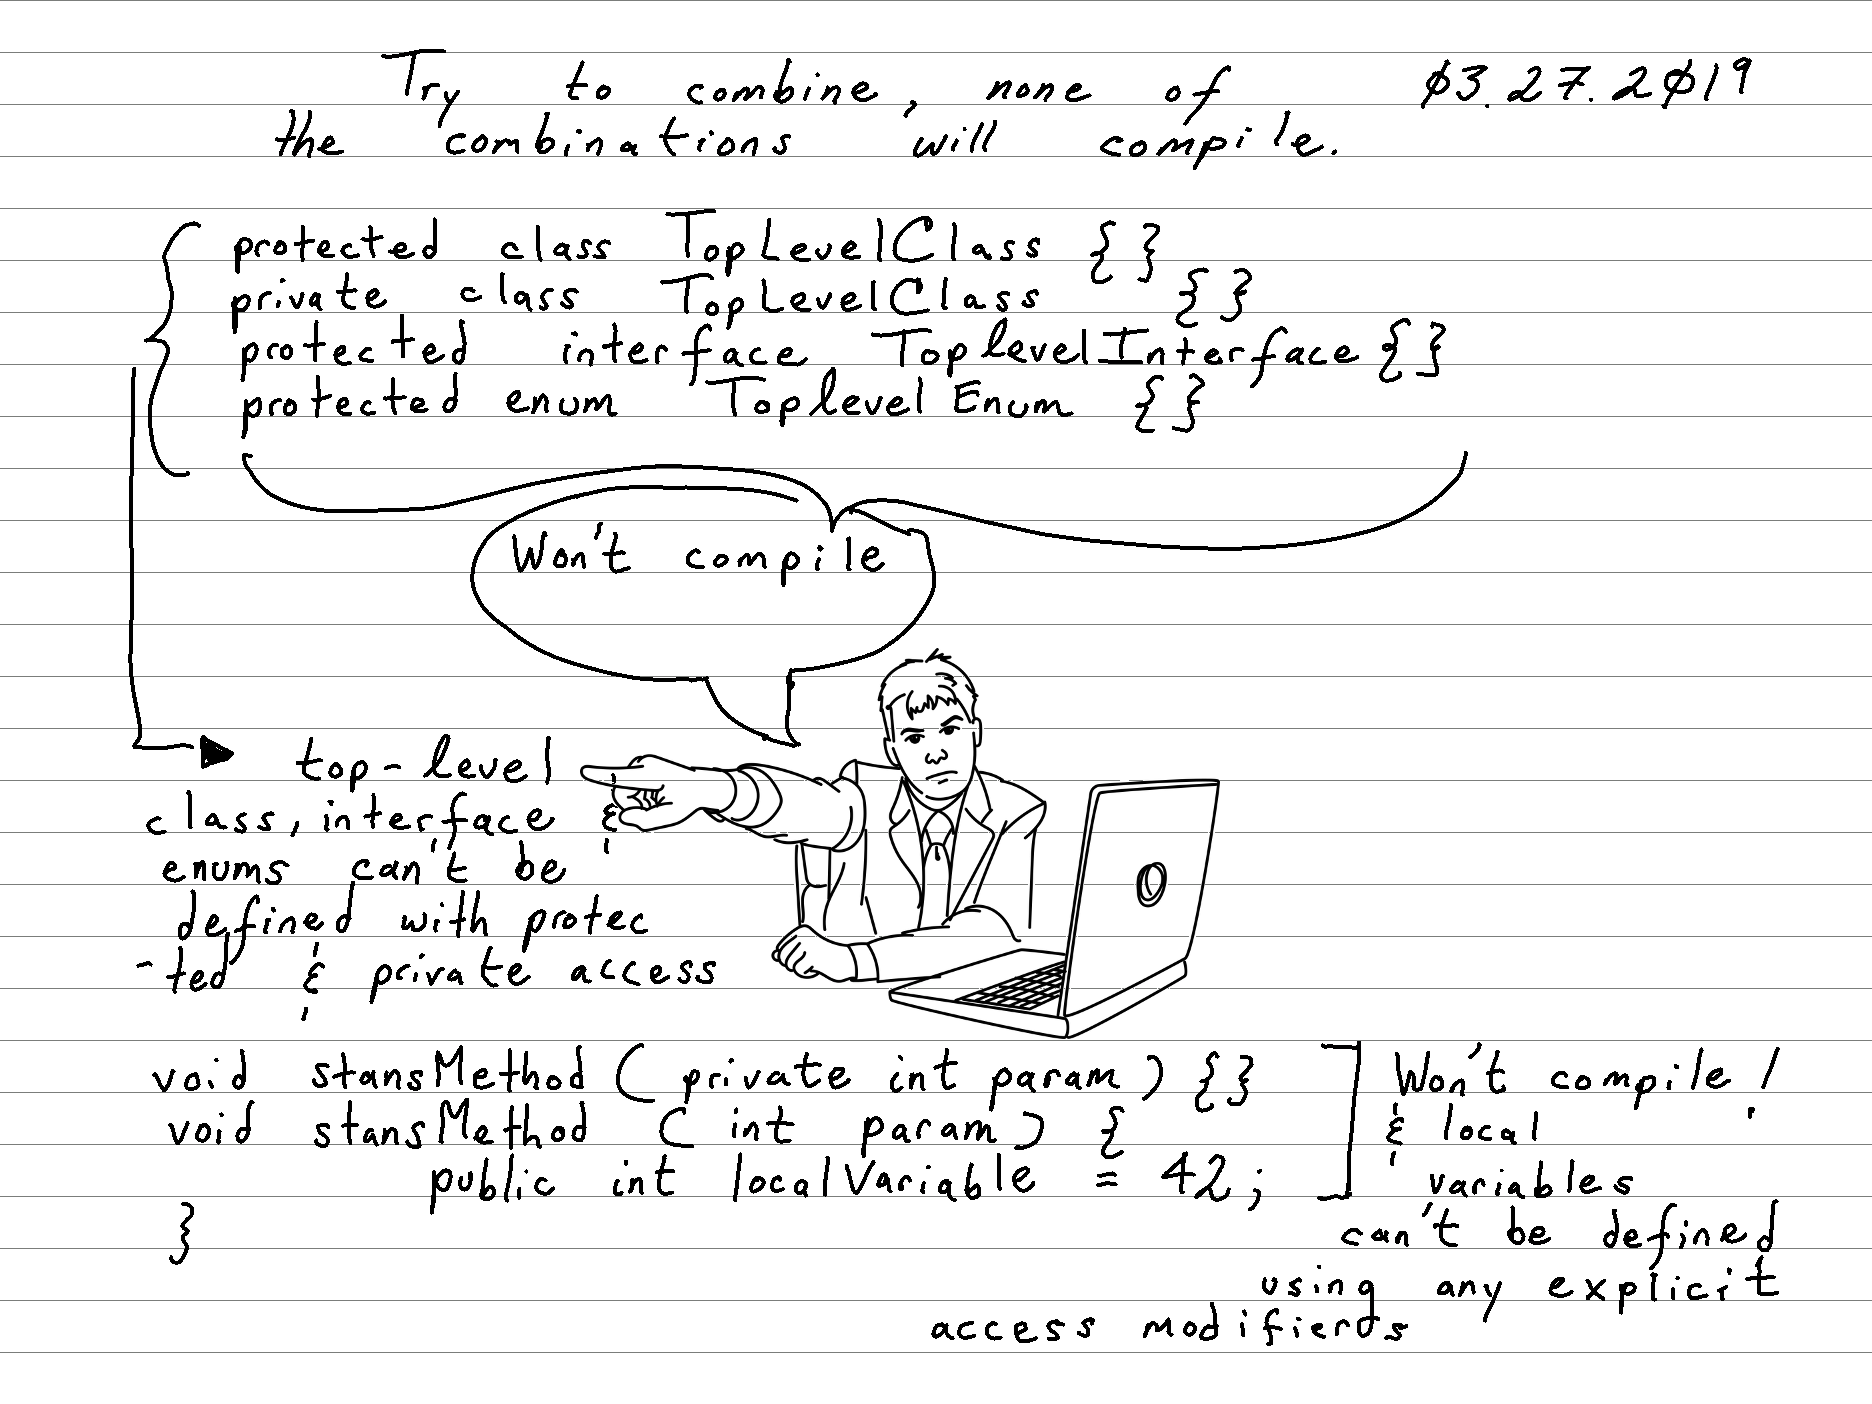 Try to combine, none of
the combinations will compile.
03.27.2019
protected class TopLevelClass {}
private class TopLevelClass {}
protected interface ToplevelInterface {}
protected enum ToplevelEnum {}
Won't compile
top-level
class, interface &
enums can't be
defined with protec
-ted & private access
void stansMethod (private int param) {}
void stansMethod (int param) {
public int localVariable = 42;
}
Won't compile!
& local
variables
can't be defined
using any explicit
access modifierds